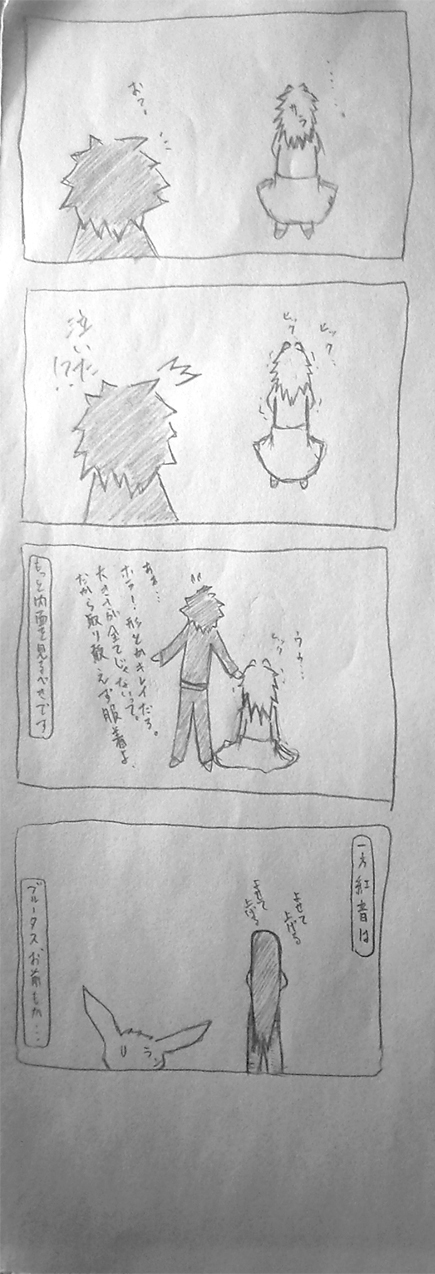 ……。
おっ。
ヒック
ヒック…
泣いた
!?
うぅ…
ヒック
あぁ…
ホラ!形とかキレイだろ。
大きさが全てじゃないって。
だから取り敢えず服着よ、
もっと内面を見るべきです
一方紅音は
よせて
上げる
よせて
上げる
リ
ラン
ブルータスお前もか…